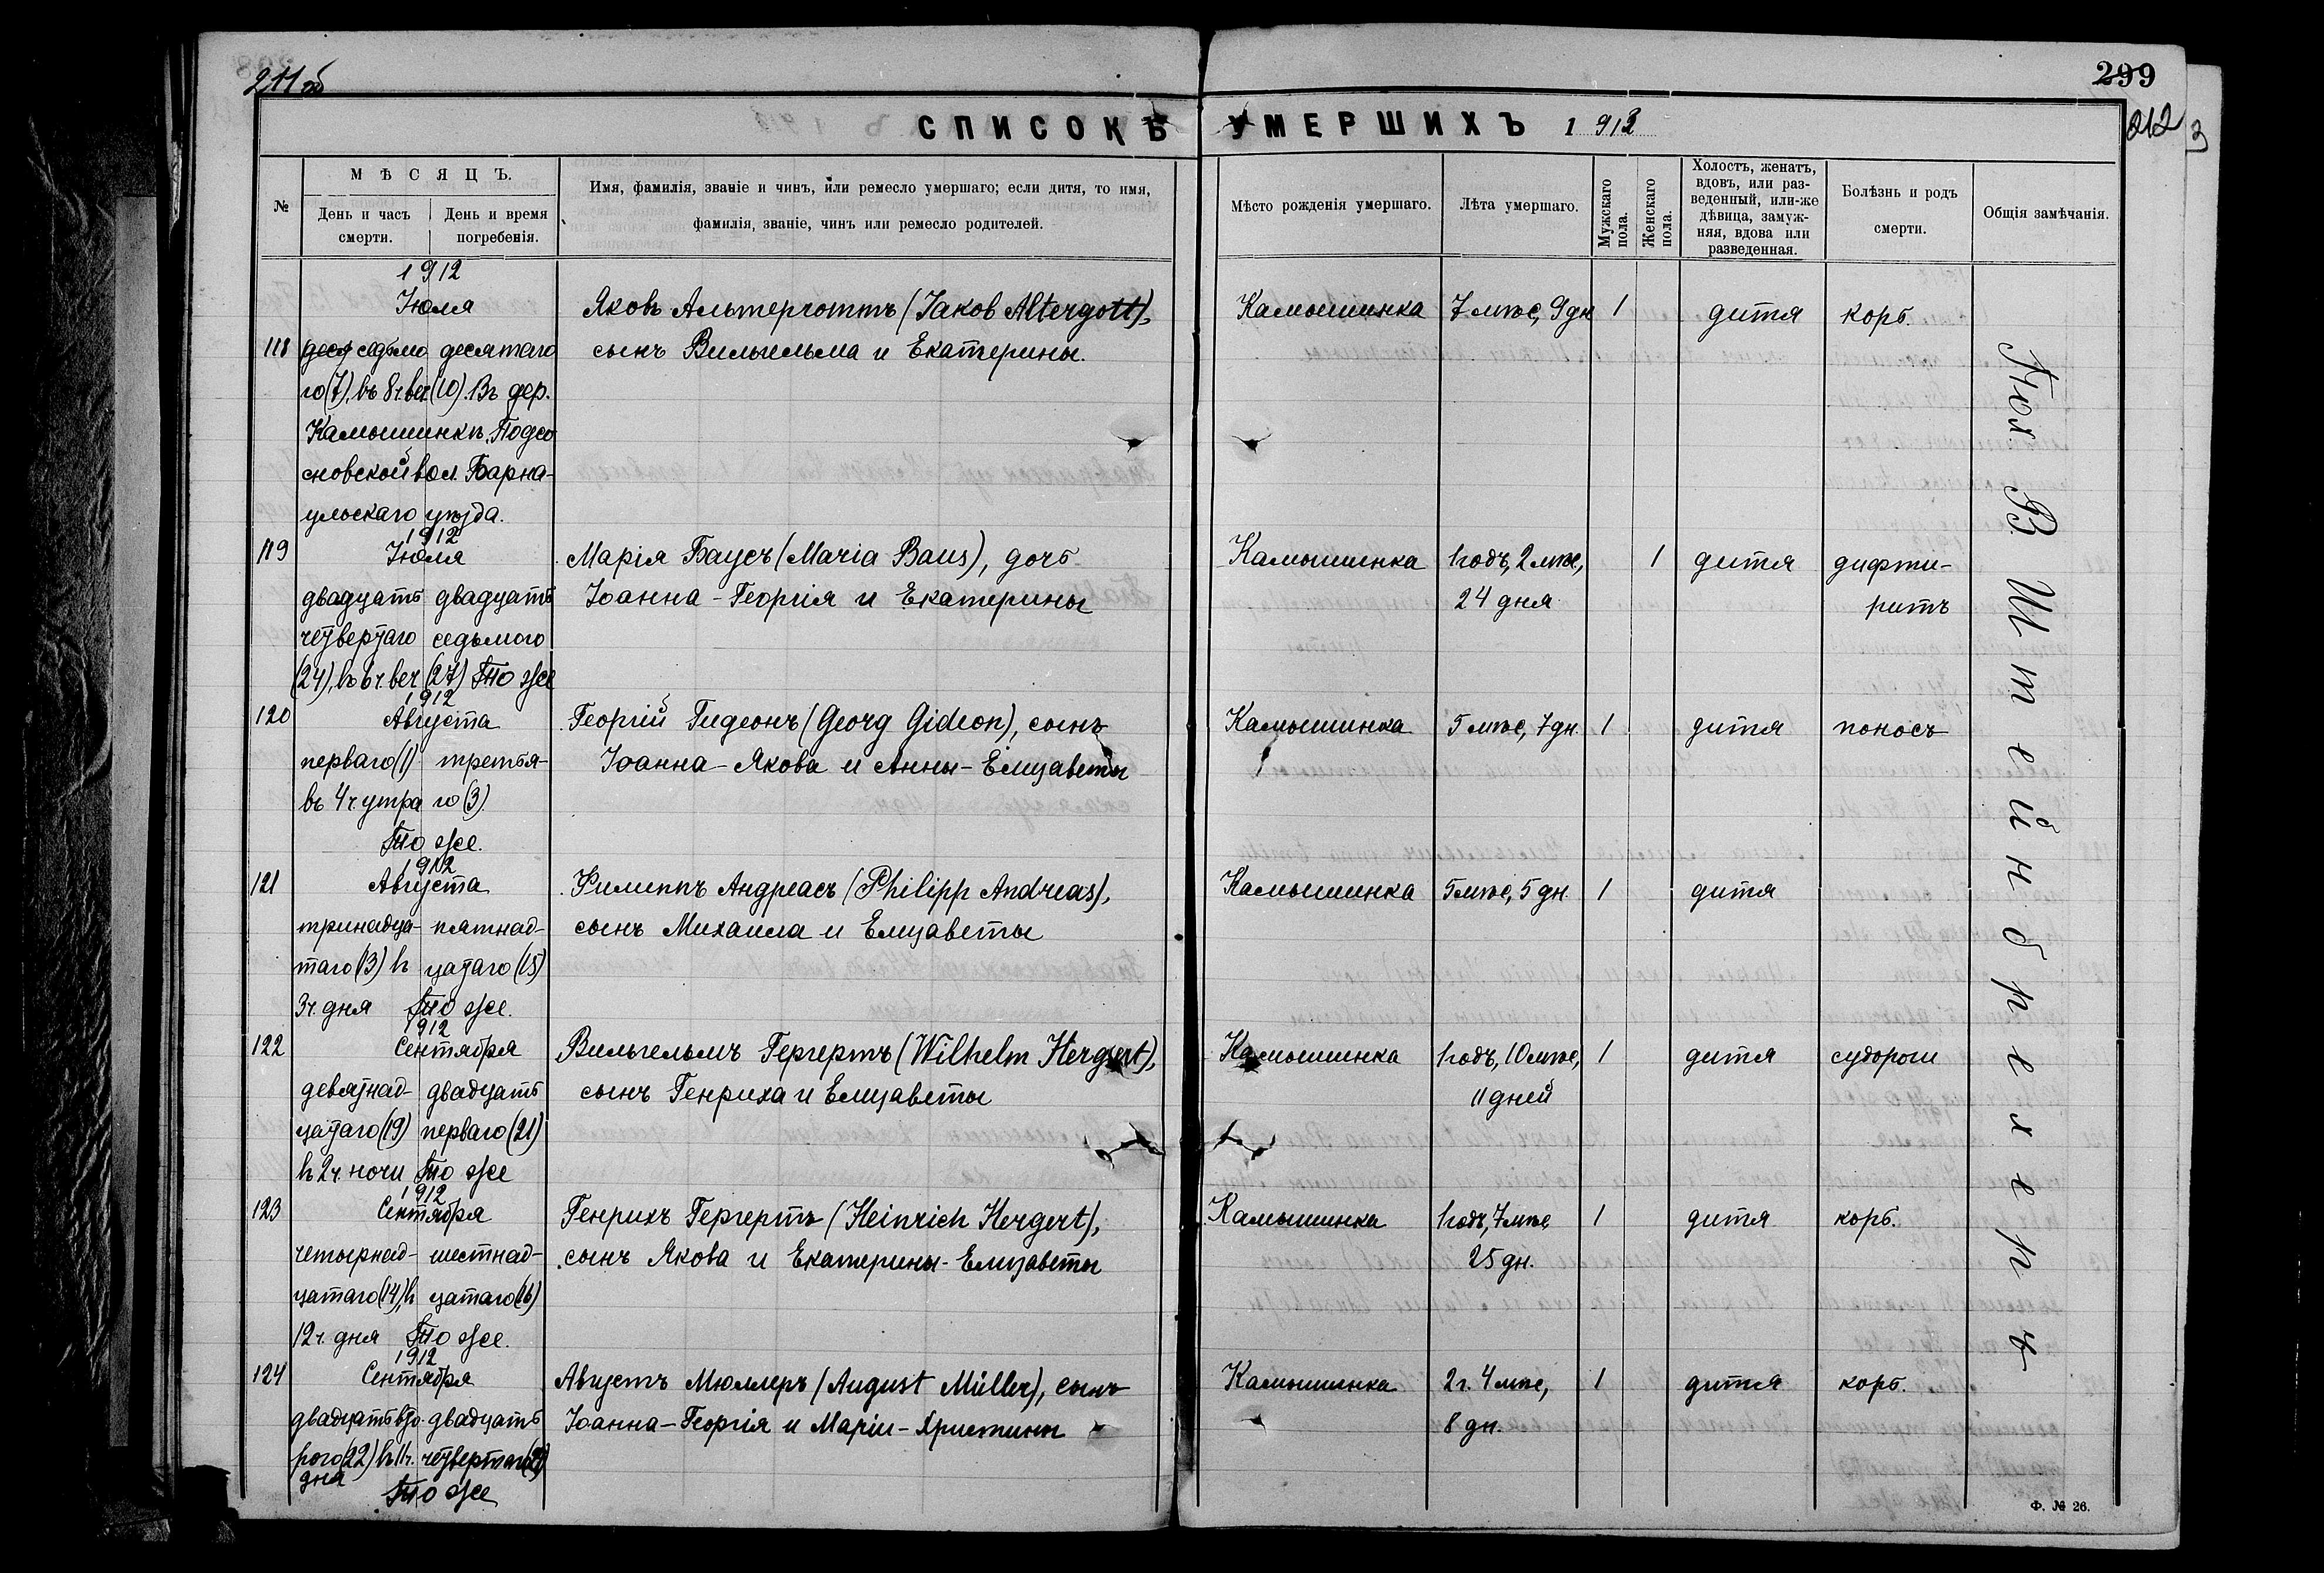 211 об
299
212
3
СПИСОКЪ УМЕРШИХЪ 1912
№
МѢСЯЦЪ.
День и часъ смерти.
День и время погребенія.
Имя, фамилія, званіе и чинъ, или ремесло умершаго; если дитя, то имя,
фамилія, званіе, чинъ или ремесло родителей.
Мѣсто рожденія умершаго.
Лѣта умершаго.
Мужскаго пола.
Женскаго пола.
Холостъ, женатъ,
вдовъ, или раз-
веденный, или-же
дѣвица, замуж-
няя, вдова или
разведенная.
Болѣзнь и родъ
смерти.
Общія замѣчанія.
1912
Іюля
118 седьмо десятаго
го (7), въ 8 ч. веч. (10). Въ дер.
Камышинкѣ, Подсо
сновской вол. Барна-
ульскаго уѣзда.
Яковъ Альтерготтъ (Jakob Altergott),
сынъ Вильгельма и Екатерины.
Камышинка 7 мѣс, 9 дн 1 дитя корь.
1912
119 Іюля
двадцать двадцать
четвертаго седьмого
(24), въ 6 ч. веч (27) То же
Марія Баусъ (Maria Baus), дочь
Іоанна-Георгія и Екатерины
Камышинка 1 годъ, 2 мѣс, 1 дитя дифти-
24 дня ритъ
1912
120 Августа
перваго (1) третья-
въ 4 ч. утра го (3).
То же.
Георгій Гидеонъ (Georg Gideon), сынъ
Іоанна-Якова и Анны-Елизаветы
Камышинка 5 мѣс, 7 дн. 1 дитя поносъ
1912
121 Августа
тринадца- пятнад-
таго (13) в цатаго (15)
3 ч. дня То же.
Филиппъ Андреасъ (Philipp Andreas),
сынъ Михаила и Елизаветы
Камышинка 5 мѣс, 5 дн. 1 дитя
1912
122 Сентября
девятнад- двадцать
цатаго (19) перваго (21)
в 2 ч. ночи То же
Вильгельмъ Гергертъ (Wilhelm Hergert),
сынъ Генриха и Елизаветы
Камышинка 1 годъ, 10 мѣс, 1 дитя судороги
11 дней
1912
123 Сентября
четырнад- шестнад-
цатаго (14), в цатаго (16)
12 ч. дня То же.
Генрихъ Гергертъ (Heinrich Hergert),
сынъ Якова и Екатерины-Елизаветы
Камышинка 1 годъ, 7 мѣс 1 дитя корь.
25 дн.
1912
124 Сентября
двадцать вто- двадцать
рого (22) в 11 ч. четвертаго (24)
дня
То же
Августъ Мюллеръ (August Müller), сынъ
Іоанна-Георгія и Маріи-Христины
Камышинка 2 г. 4 мѣс, 1 дитя корь.
8 дн.
Штейнбрехеръ
Ф. № 26.